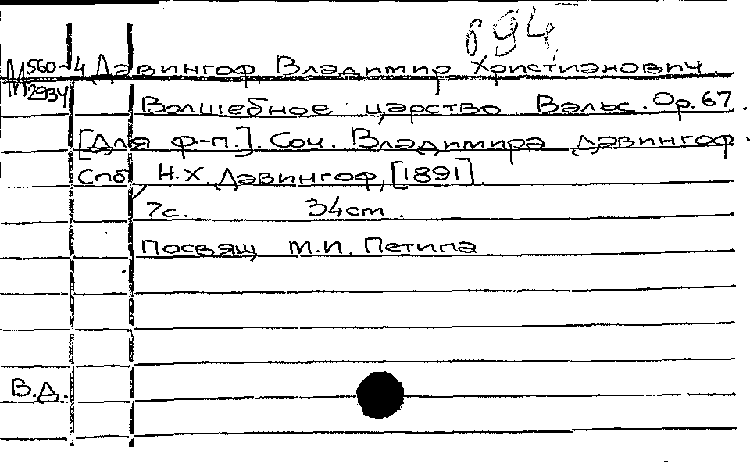 894
М 560-4 Давингоф Владимир Христианович
2934
Волшебное царство Вальс. Ор. 67.
[Для ф-п.]. Соч. Владимира Давингоф.
Спб Н.Х. Давингоф, [1891]
7с. 34cm.
Посвящ М.И. Петипа
В.Д.